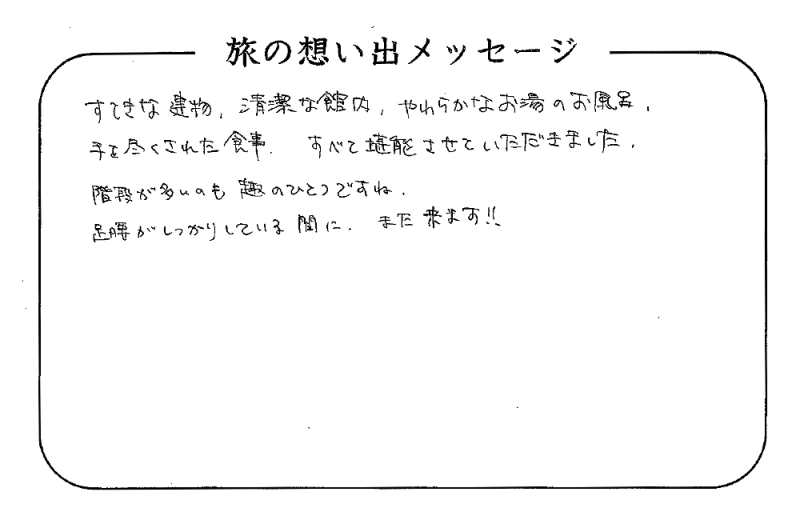 旅の想い出メッセージ
すてきな建物、清潔な館内、やわらかなお湯のお風呂、
手を尽くされた食事、すべて堪能させていただきました。
階段が多いのも趣のひとつですね。
足腰がしっかりしている間に、また来ます!!